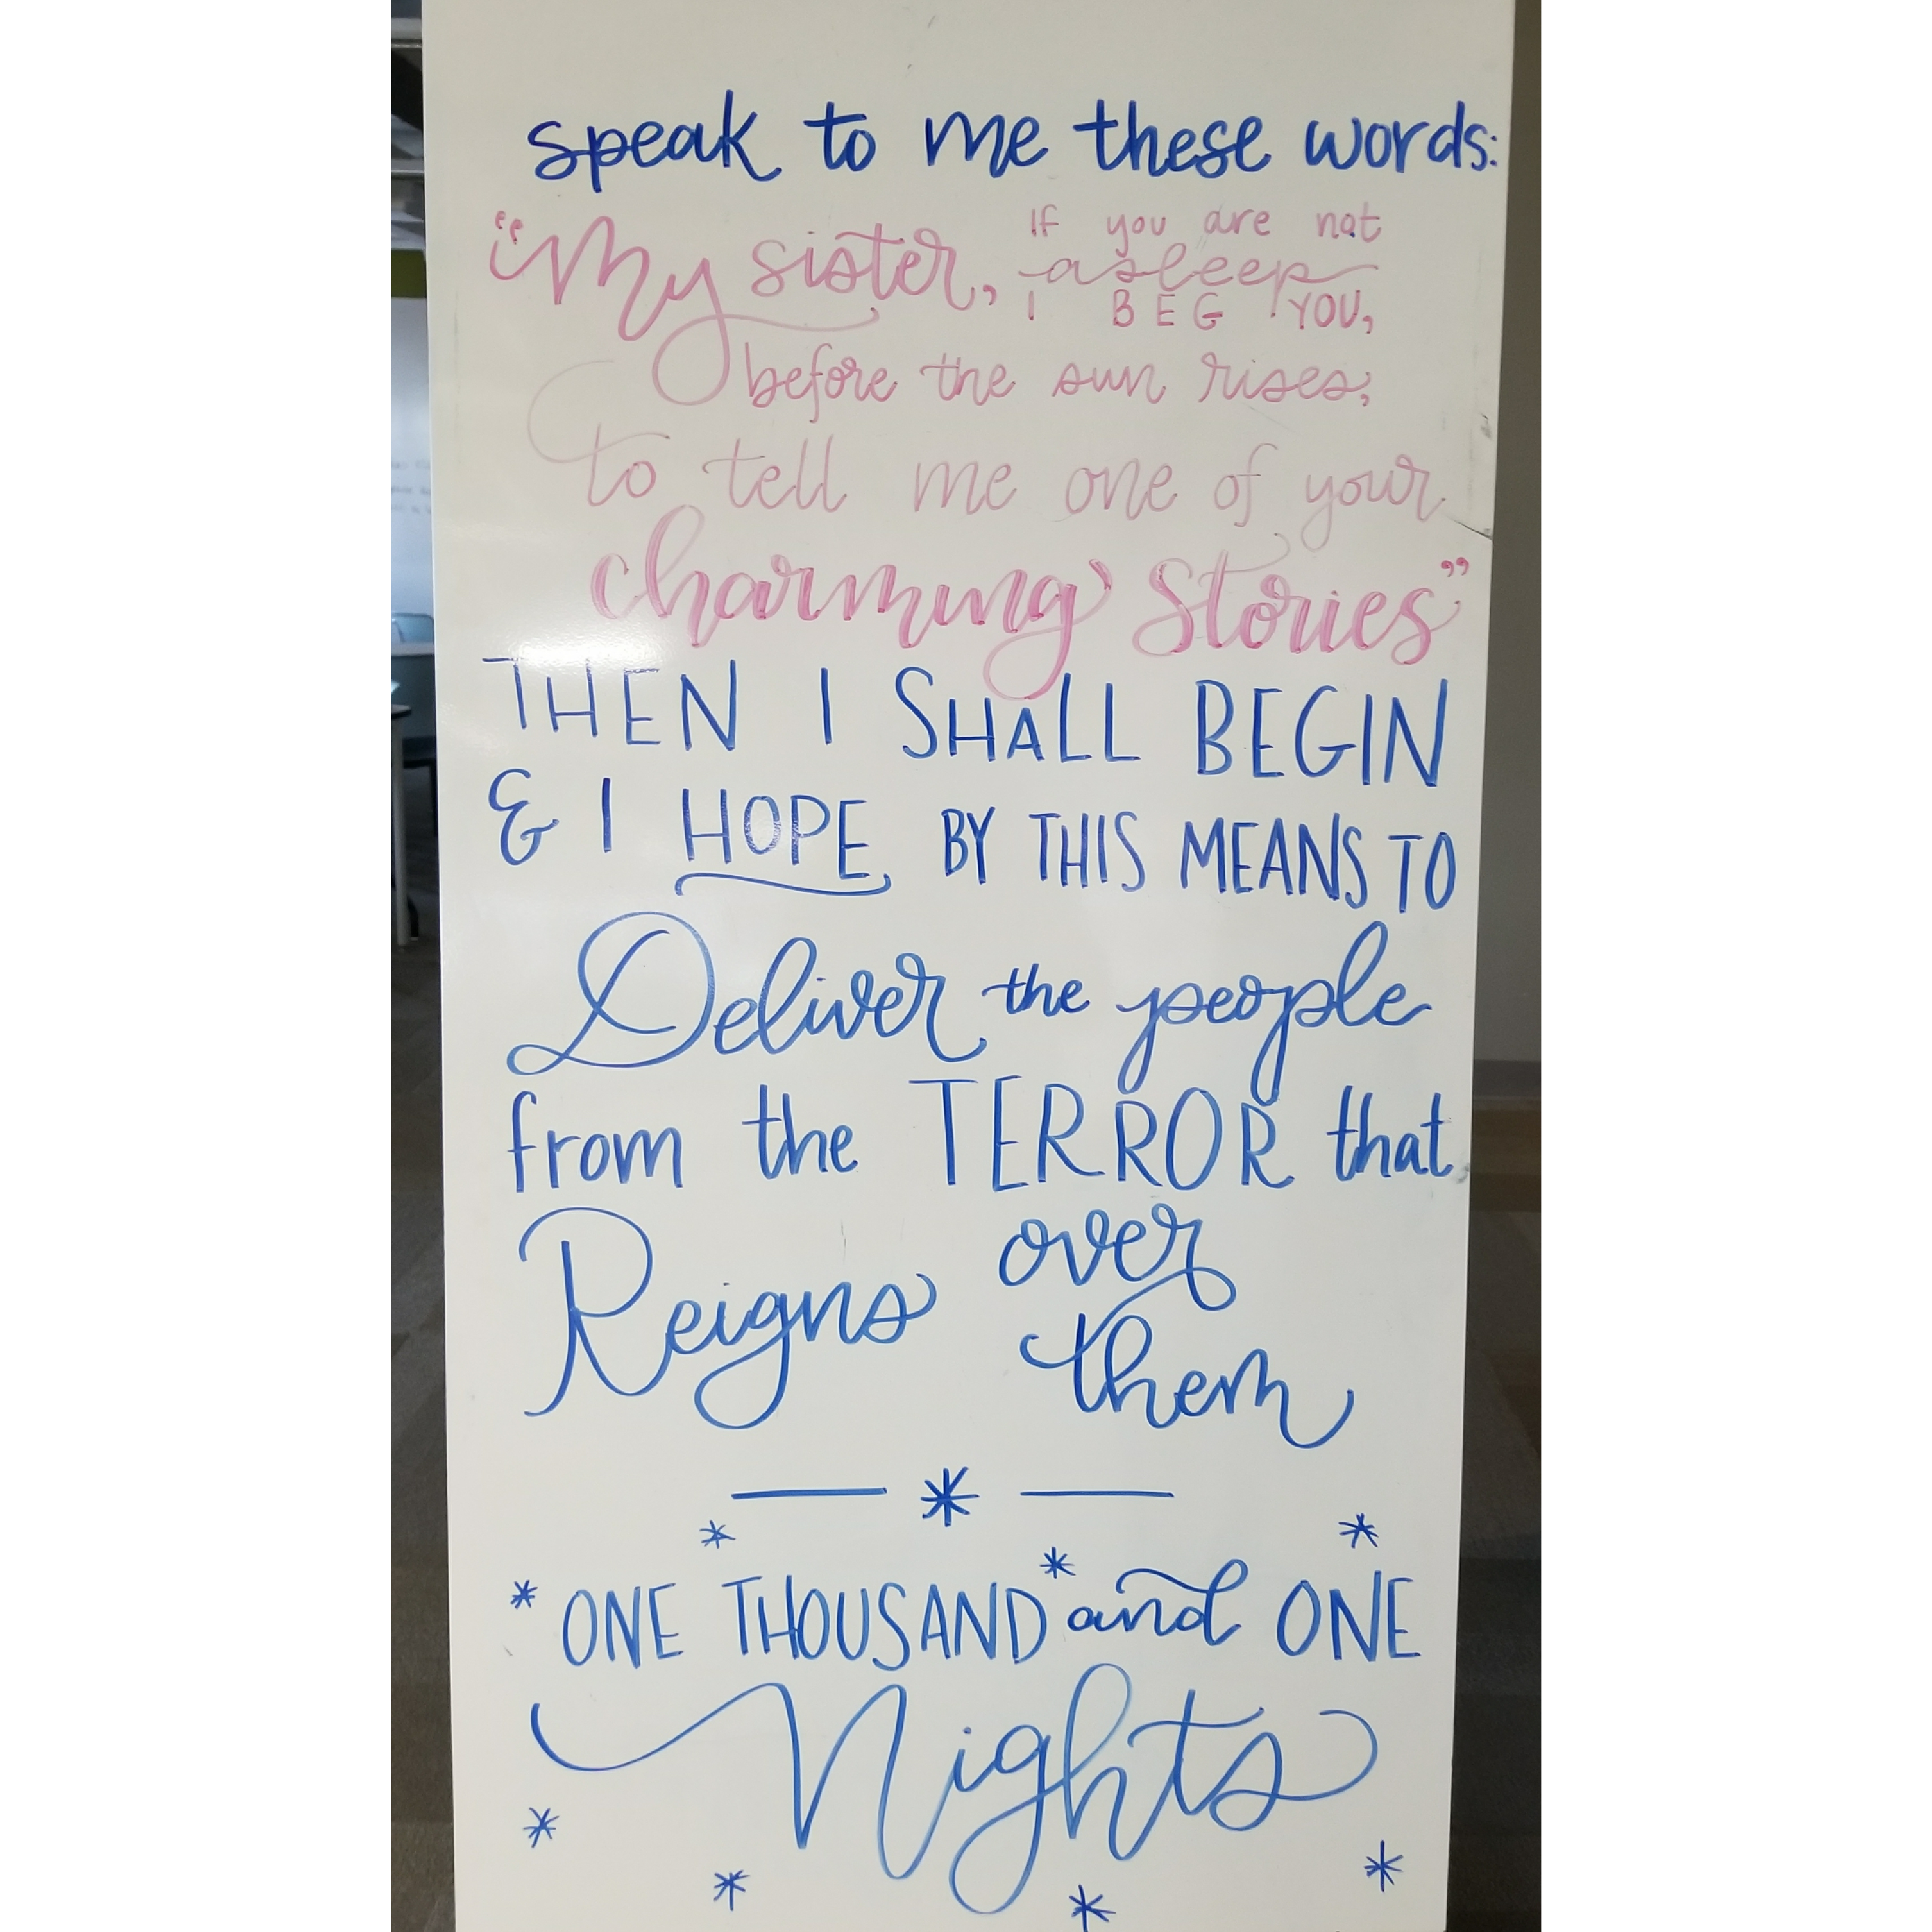 speak to me these words:
"My sister, If you are not
asleep
I BEG YOU,
before the sun rises,
to tell me one of your
charming Stories"
THEN I SHALL BEGIN
& I HOPE BY THIS MEANS TO
Deliver the people
from the TERROR that
Reigns over
them
ONE THOUSAND and ONE
Nights